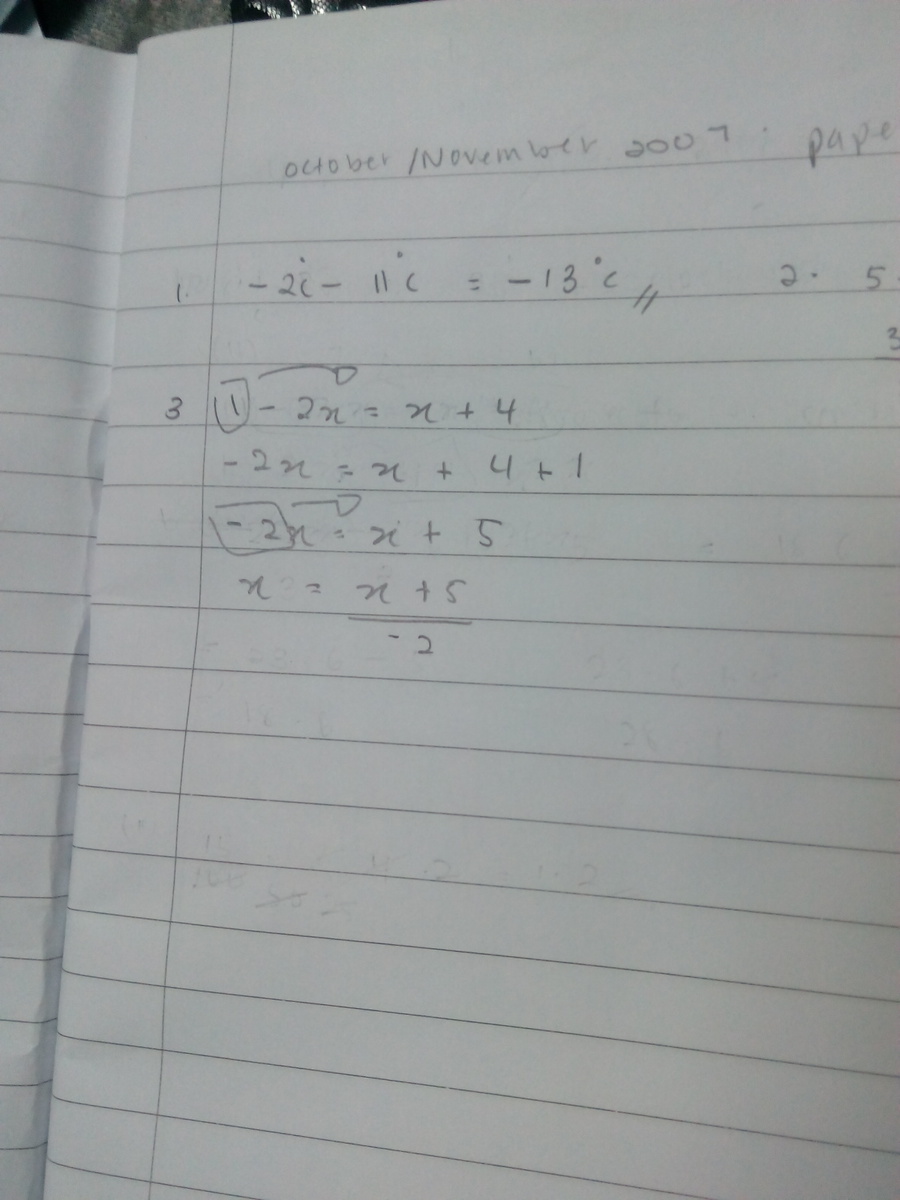 October/November 2007. pape
1. -2°c - 11°c = -13°c // 2. 5.
3
3 1 - 2x = x + 4
-2x = x + 4 + 1
-2x = x + 5
x = x + 5
-2